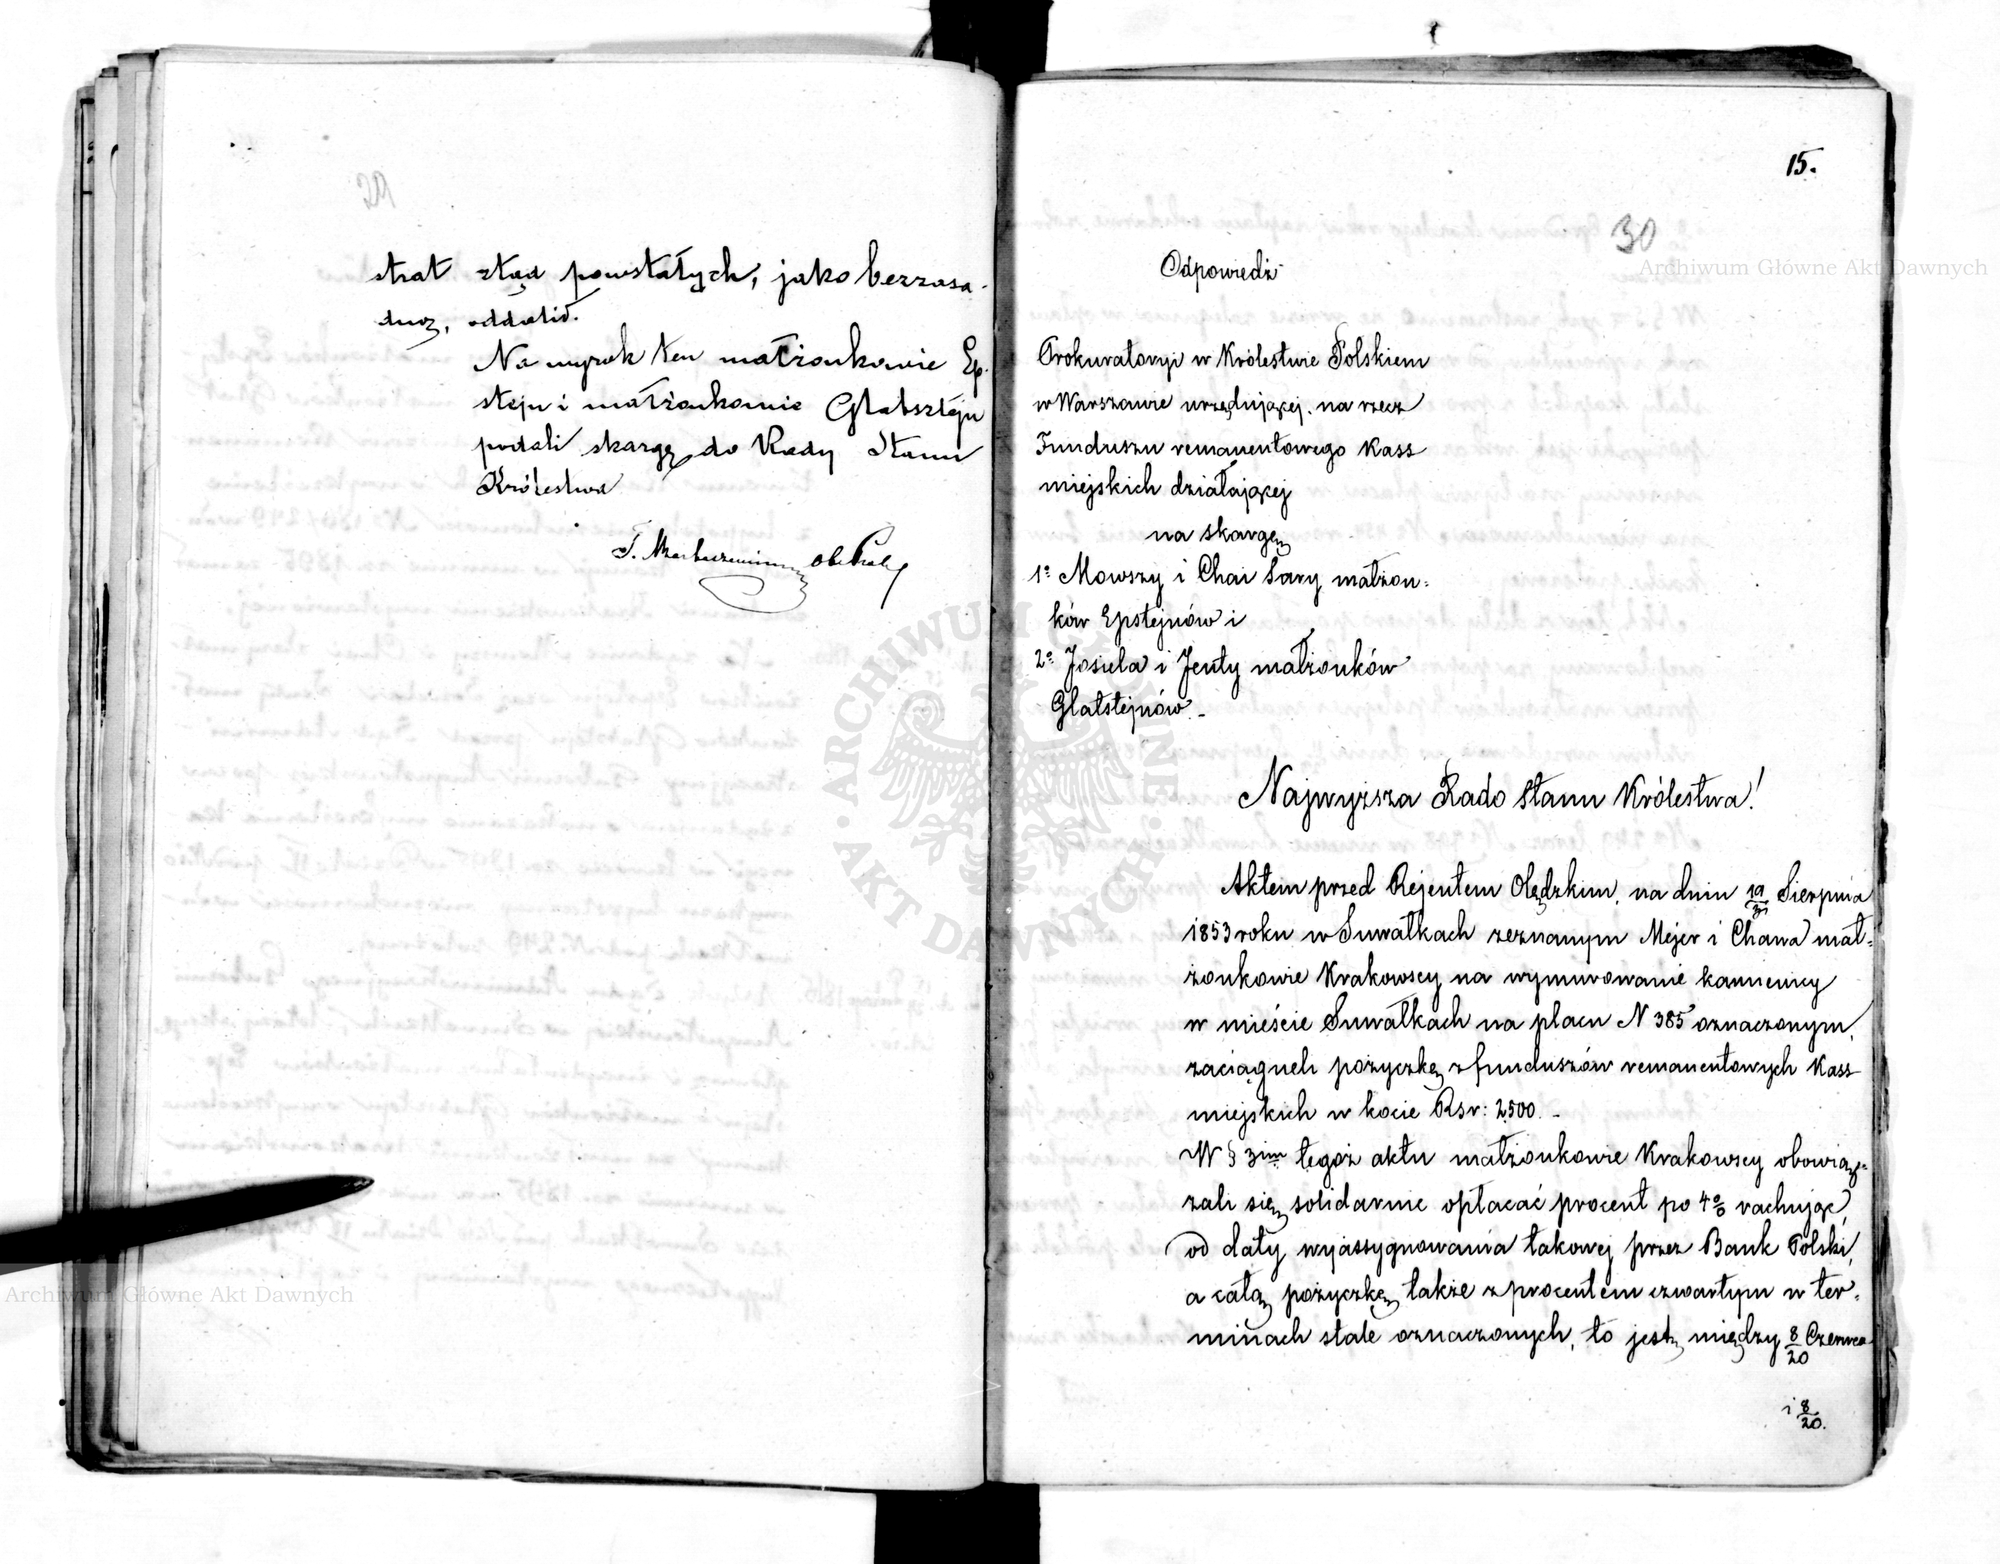 29
strat ztąd powstałych, jako bezzasa-
dną, oddalić.
Na wyrok ten małżonkowie Ep-
stejn i małżonkowie Glatsztejn
podali skargę do Rady Stanu
Królestwa
15.
30
Odpowiedź
Prokuratoryi w Królestwie Polskiem
w Warszawie urzędującej, na rzecz
Funduszu remanentowego Kass
miejskich działającej
na skargę
1º Mowszy i Chai Sary małżon-
ków Epstejnów i
2º Josiela i Jenty małżonków
Glatstejnów.-
Najwyższa Rado Stanu Królestwa!
Aktem przed Rejentem Olędzkim, na dniu 19/31 Sierpnia
1853 roku w Suwałkach zeznanym Mejer i Chawa mał-
żonkowie Krakowscy na wymurowanie kamienicy
w mieście Suwałkach na placu N 385 oznaczonym,
zaciągneli pożyczkę z funduszów remanentowych Kass
miejskich w kocie Rsr: 2500.-
W § 3im tegoż aktu małżonkowie Krakowscy obowiązą-
zali się solidarnie opłacać procent po 4% rachując
od daty wyassygnowania takowej przez Bank Polski,
a całą pożyczkę także z procentem czwartym w ter-
minach stale oznaczonych, to jest, między 8/20 Czerwca
i 8/20.
Archiwum Główne Akt Dawnych
Archiwum Główne Akt Dawnych
ARCHIWUM GŁÓWNE AKT DAWNYCH